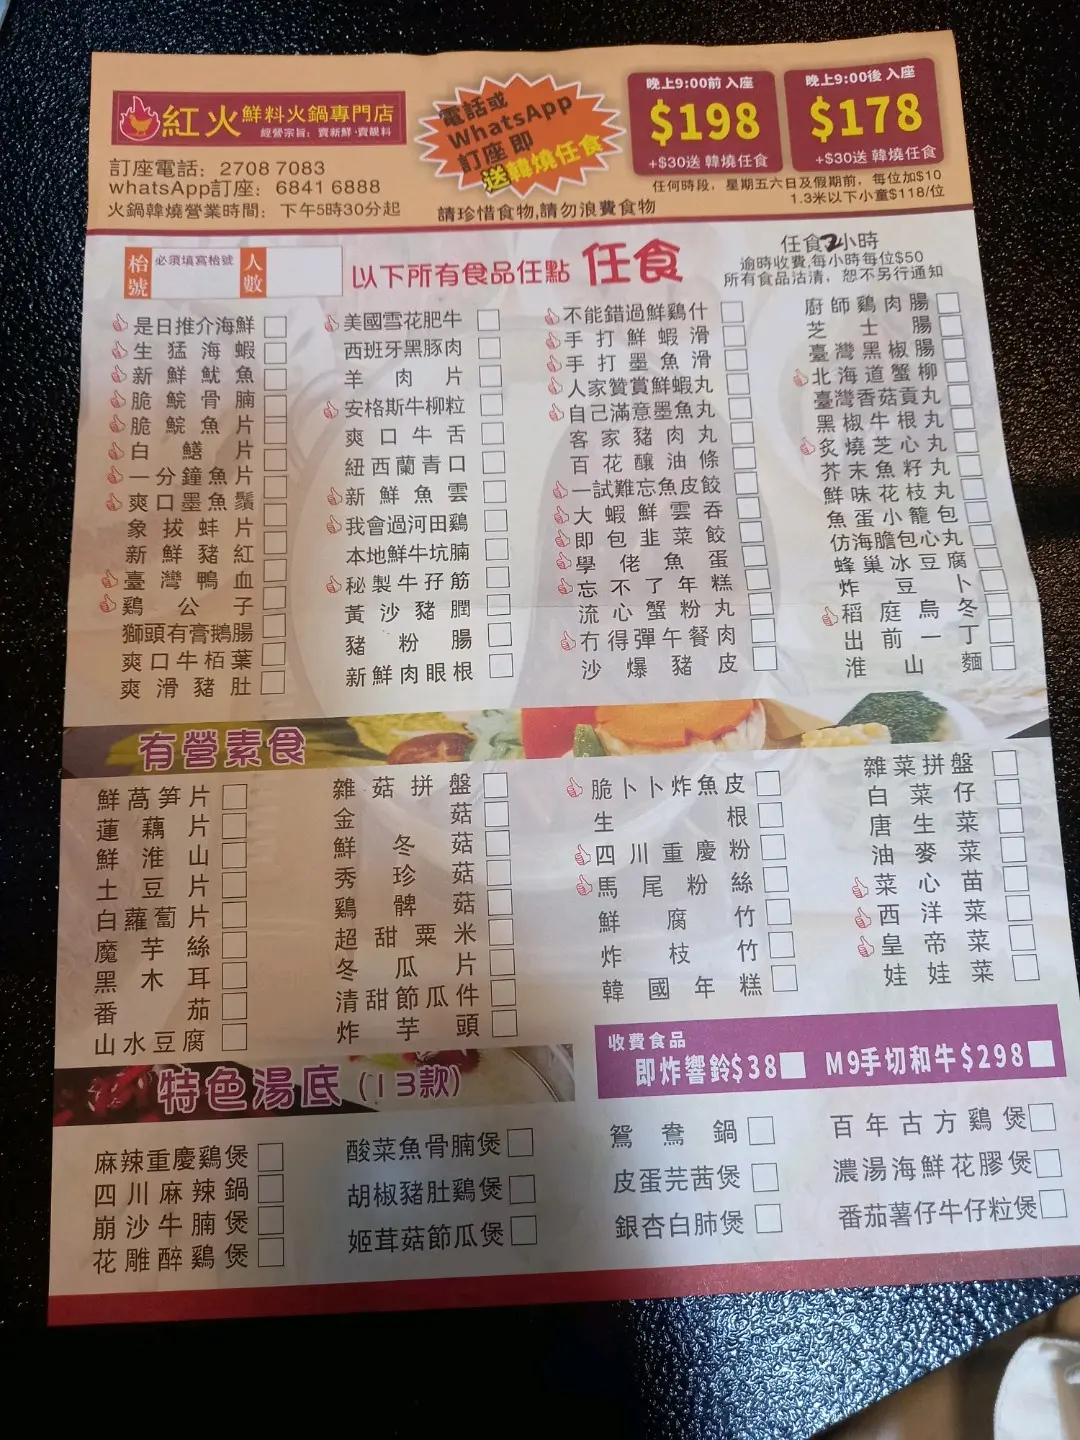 紅火鮮料火鍋專門店
經營宗旨：賣新鮮·賣靚料
訂座電話：2708 7083
whatsApp訂座：6841 6888
火鍋韓燒營業時間：下午5時30分起
電話或
WhatsApp
訂座即
送韓燒任食
請珍惜食物,請勿浪費食物
晚上9:00前 入座
$198
+$30送 韓燒任食
晚上9:00後 入座
$178
+$30送 韓燒任食
任何時段，星期五六日及假期前，每位加$10
1.3米以下小童$118/位
枱號
必須填寫枱號
人數
以下所有食品任點 任食
任食2小時
逾時收費,每小時每位$50
所有食品沽清，恕不另行通知
是日推介海鮮
生猛海蝦
新鮮魷魚
脆鯇骨腩
脆鯇魚片
白鱔片
一分鐘魚片
爽口墨魚鬚
象拔蚌片
新鮮豬紅
臺灣鴨血
鷄公子
獅頭有膏鵝腸
爽口牛栢葉
爽滑豬肚
美國雪花肥牛
西班牙黑豚肉
羊肉片
安格斯牛柳粒
爽口牛舌
紐西蘭青口
新鮮魚雲
我會過河田鷄
本地鮮牛坑腩
秘製牛孖筋
黃沙豬膶
豬粉腸
新鮮肉眼根
不能錯過鮮鷄什
手打鮮蝦滑
手打墨魚滑
人家贊賞鮮蝦丸
自己滿意墨魚丸
客家豬肉丸
百花釀油條
一試難忘魚皮餃
大蝦鮮雲吞
即包韭菜餃
學佬魚蛋
忘不了年糕
流心蟹粉丸
冇得彈午餐肉
沙爆豬皮
廚師鷄肉腸
芝士腸
臺灣黑椒腸
北海道蟹柳
臺灣香菇貢丸
黑椒牛根丸
炙燒芝心丸
芥末魚籽丸
鮮味花枝丸
魚蛋小籠包
仿海膽包心丸
蜂巢冰豆腐
炸豆卜
稻庭烏冬
出前一丁
淮山麵
有營素食
鮮萵笋片
蓮藕片
鮮淮山
土豆片
白蘿蔔片
魔芋絲
黑木耳
番茄
山水豆腐
雜菇拼盤
金菇
鮮冬菇
秀珍菇
鷄髀菇
超甜粟米
冬瓜片
清甜節瓜件
炸芋頭
脆卜卜炸魚皮
生根
四川重慶粉
馬尾粉絲
鮮腐竹
炸枝竹
韓國年糕
雜菜拼盤
白菜仔
唐生菜
油麥菜
菜心苗
西洋菜
皇帝菜
娃娃菜
收費食品
即炸響鈴$38 M9手切和牛$298
特色湯底(13款)
麻辣重慶鷄煲
四川麻辣鍋
崩沙牛腩煲
花雕醉鷄煲
酸菜魚骨腩煲
胡椒豬肚鷄煲
姬茸菇節瓜煲
鴛鴦鍋
皮蛋芫茜煲
銀杏白肺煲
百年古方鷄煲
濃湯海鮮花膠煲
番茄薯仔牛仔粒煲